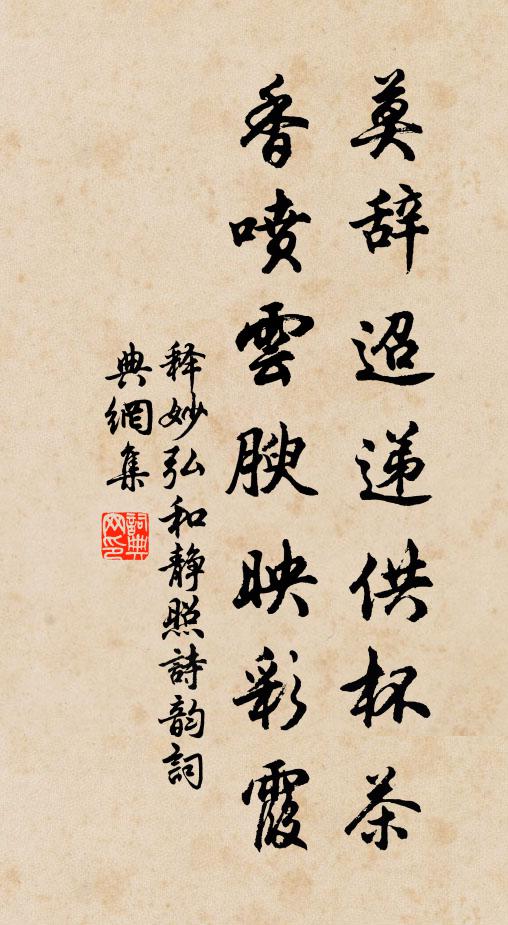 莫辞迢递供杯茶
香喷雲腴映彩霞
释妙弘和静照詩韵詞
典網集
詞典
网印